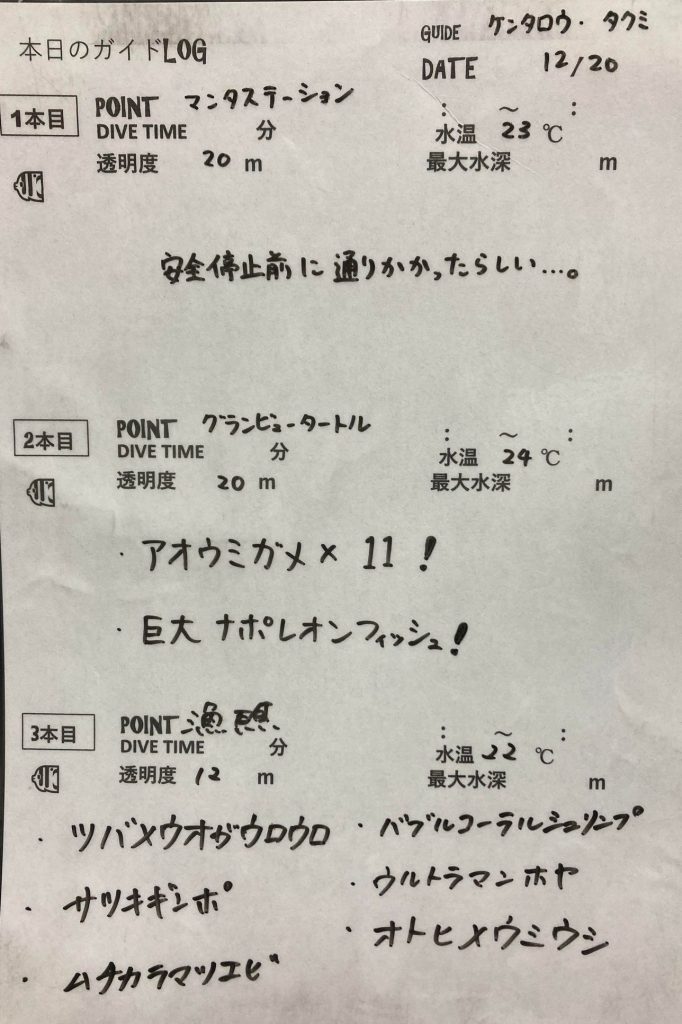 本日のガイドLOG
GUIDE ケンタロウ・タクミ
DATE 12/20
1本目
POINT マンタステーション
DIVE TIME 分
: ～ :
水温 23 ℃
透明度 20 m
最大水深 m
安全停止前に通りかかったらしい…。
2本目
POINT グランビュータートル
DIVE TIME 分
: ～ :
水温 24 ℃
透明度 20 m
最大水深 m
・アオウミガメ× 11!
・巨大ナポレオンフィッシュ!
3本目
POINT 漁
DIVE TIME 分
: ～ :
水温 22 ℃
透明度 12 m
最大水深 m
・ツバメウオがウロウロ
・バブルコーラルシュリンプ
・サツキギンポ
・ウルトラマンホヤ
・オトヒメウミウシ
・ムチカラマツエビ